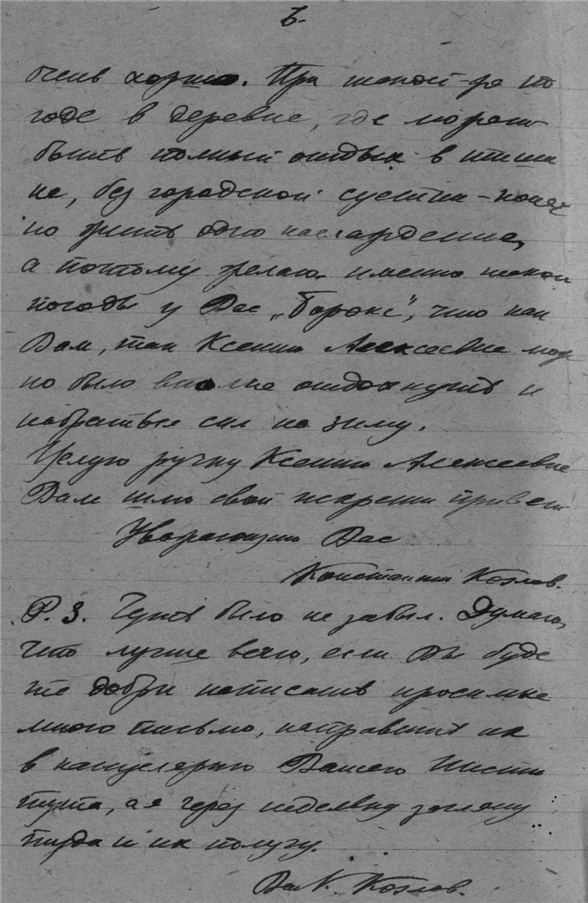 очень хорошо. При такой-же по
годе в деревне, где может
быть полный отдых в тиши
не, без городской суетни - конеч
но жить одно наслаждение,
а потому желаю именно такой
погоды у Вас „Барокс", что как
Вам, так Ксении Алексеевне мож
но было вполне отдохнуть и
набраться сил на зиму.
Целую ручку Ксении Алексеевне
Вам шлю свой искрени привет
Уважающий Вас
Константин Козлов.
P. S. Чуть было не забыл. Думаю,
что лучше всего, если Вы буде
те добры написать просимые
мною письмо, направить их
в канцелярию Вашего Инсти
тута, а я через недельку загляну
туда и их получу.
Козлов.